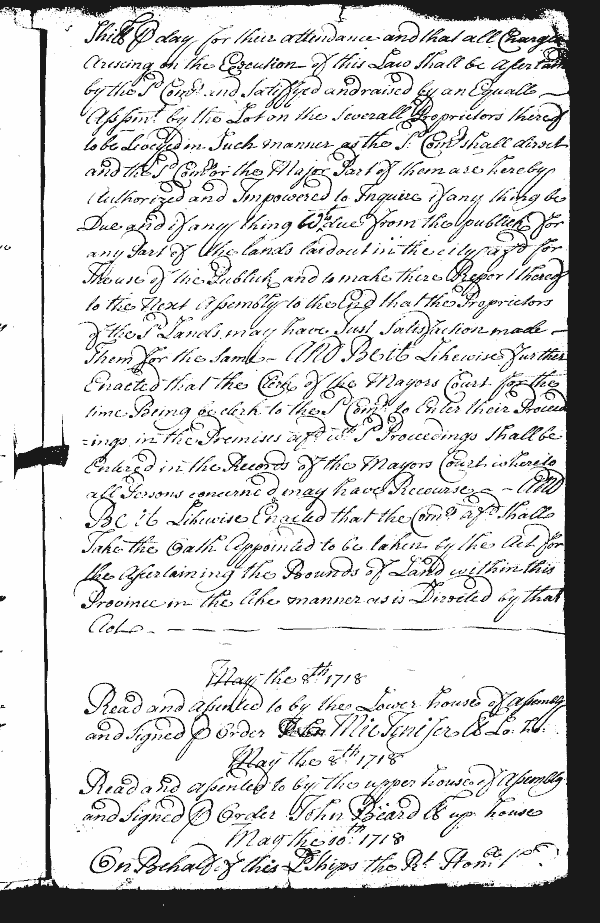 Shill ⅌ day for their attendance and that all Charges
Areising on the Execution of this Law shall be Asertain
by the Sd. Comrs. and Satisfyed and raised by an Equall
Assmt. by the Lot on the Severall Proprietors thereof
to be Leveyed in Such manner as the Sd. Comrs. shall direct
and the Sd. Comrs. or the Major Part of them are hereby
Authorized and Impowered to Inquire if any thing be
Due and if any thing wt. due from the publick for
any Part of the lands laid out in the city afd. for
the use of the Publick and to make there Report thereof
to the Next Assembly to the End that the Proprietors
of the Sd. Lands may have Just Satisfaction made
Them for the same - AND Be it Likewise further
Enacted that the Clerk of the Mayors Court for the
time Being be clerk to the Sd. Comrs. to Enter their Proceed
=ings in the Premises afd. wch. Sd. Proceedings Shall be
Entered in the Records of the Mayors Court whereto
all Persons concerned may have Recourse - - AND
Be it Likewise Enacted that the Comrs. afd. Shall
Take the Oath Appointed to be taken by the Act for
the Asertaining the Bounds of Land within this
Province in the like manner as is Directed by that
Act
May the 8th 1718
Read and asented to by the Lower house of Assembly
and Signed ⅌ Order Mic Jenifer Cl Lo. ho.
May the 8th 1718
Read and asented to by the upper house of Assembly
and Signed ⅌ Order John Beard Cl up house
May the 10th 1718
On Behalf of this Lships the Rt. Honble